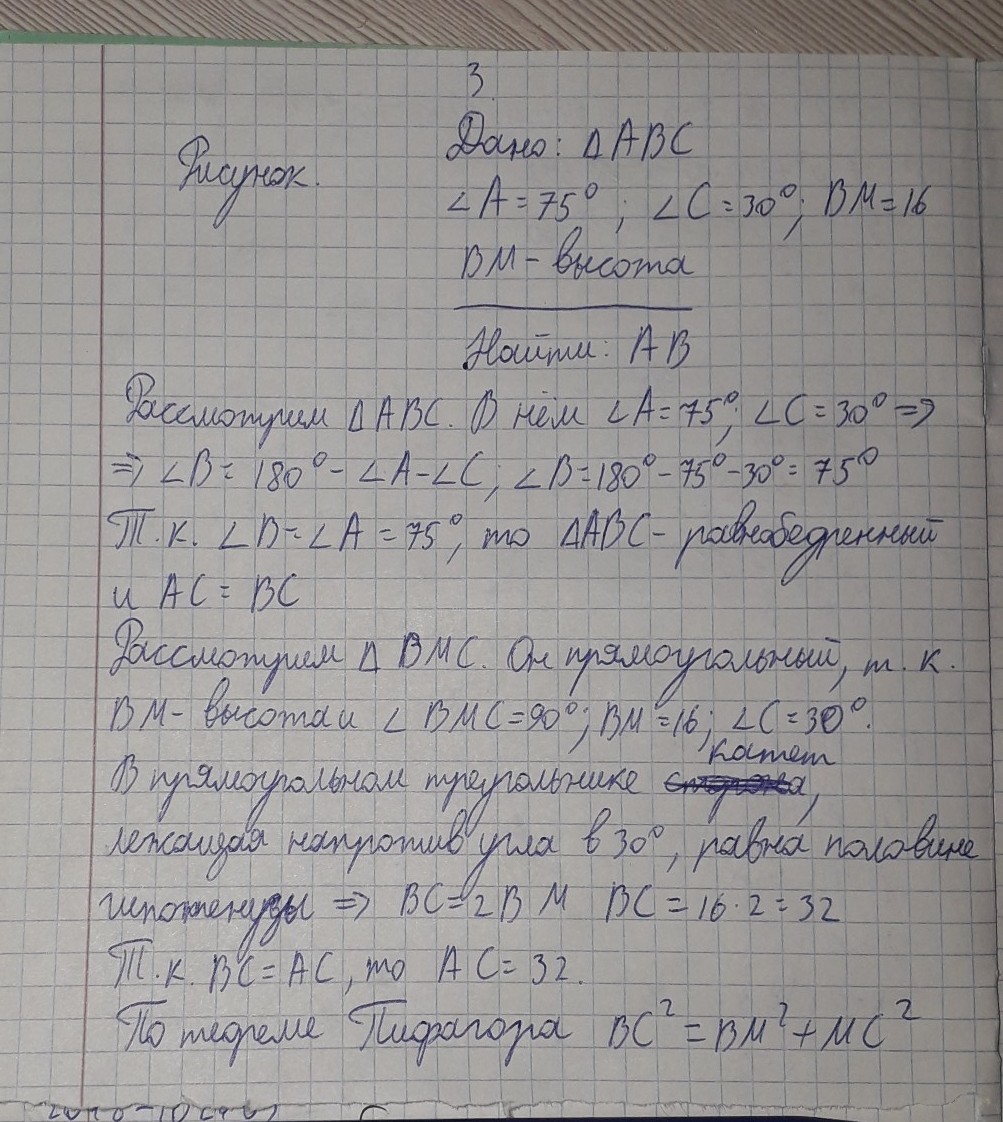 3
Рисунок.
Дано: ΔABC
∠A = 75°; ∠C = 30°; BM = 16
BM - высота
Найти: AB
Рассмотрим ΔABC. В нём ∠A = 75°; ∠C = 30° =>
=> ∠B = 180° - ∠A - ∠C; ∠B = 180° - 75° - 30° = 75°
Т. к. ∠B = ∠A = 75°, то ΔABC - равнобедренный
и AC = BC
Рассмотрим Δ BMC. Он прямоугольный, т. к.
BM - высота и ∠ BMC = 90°; BM = 16; ∠C = 30°.
В прямоугольном треугольнике катет,
лежащая напротив угла в 30°, равна половине
гипотенузы => BC = 2BM BC = 16 · 2 = 32
Т. к. BC = AC, то AC = 32.
По теореме Пифагора BC² = BM² + MC²